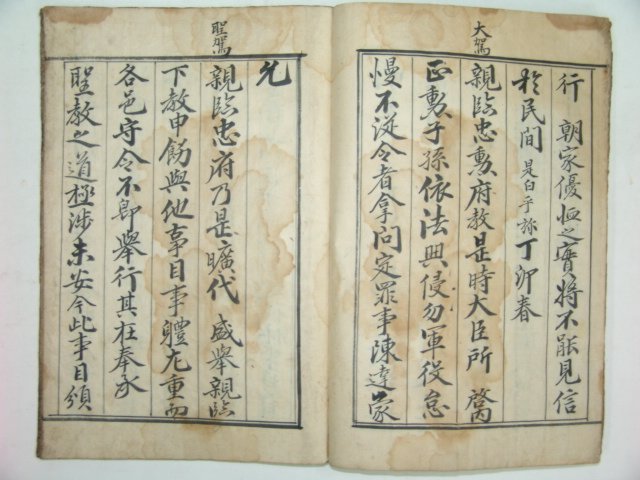 行 朝家優恤之實將不能見信
於民間 是白乎旀 丁卯春
大駕
親臨忠勳府教是時大臣所 啓
正勳子孫依法典侵勿軍役怠
慢不從令者拿問定罪事陳達蒙
允
聖駕
親臨忠府乃是曠代 盛舉親臨
下教申飭與他事目事體尤重而
各邑守令不卽舉行其在奉承
聖教之道極涉未安今此事目頒